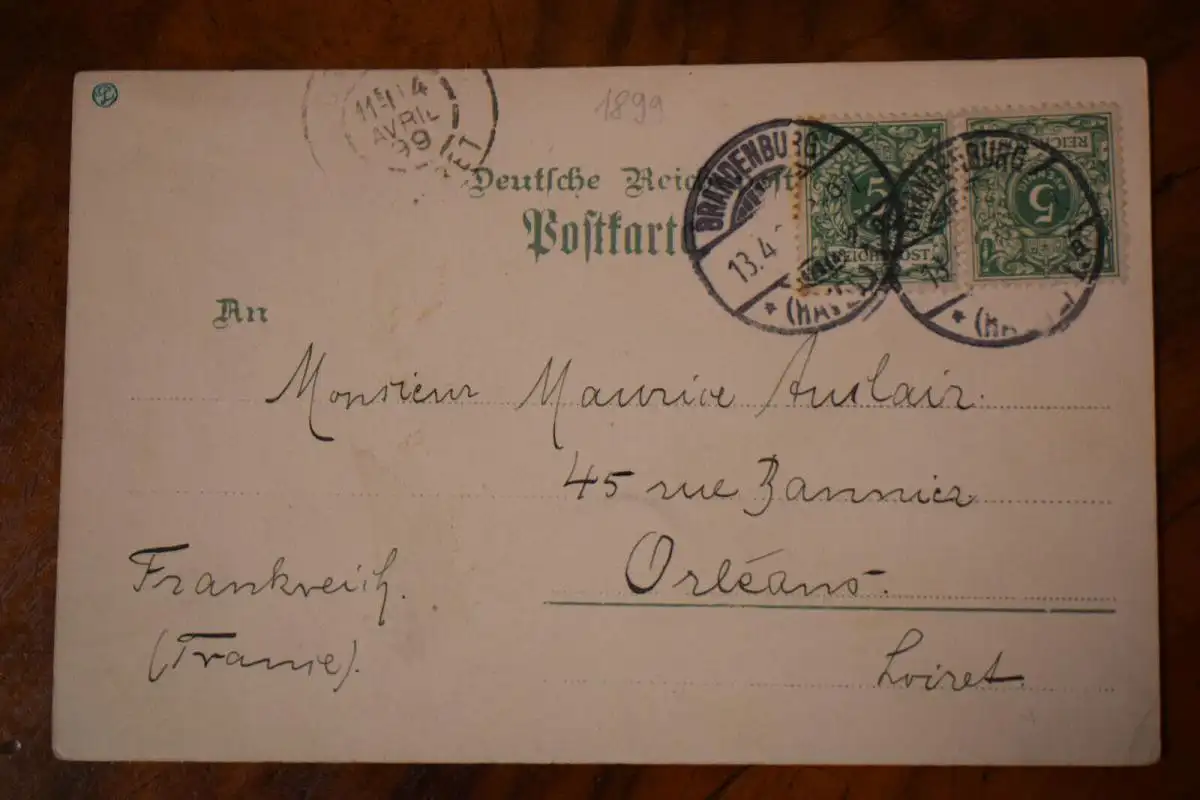 11E 14
AVRIL
99
1899
Deutsche Reichspost
Postkarte
An
BRANDENBURG
13.4
* (HAV
5
REICHSPOST
BRANDENBURG
13
5
PFENNIG
Monsieur Maurice Auclair.
45 rue Bannier
Orléans.
Frankreich.
(France).
Loiret.